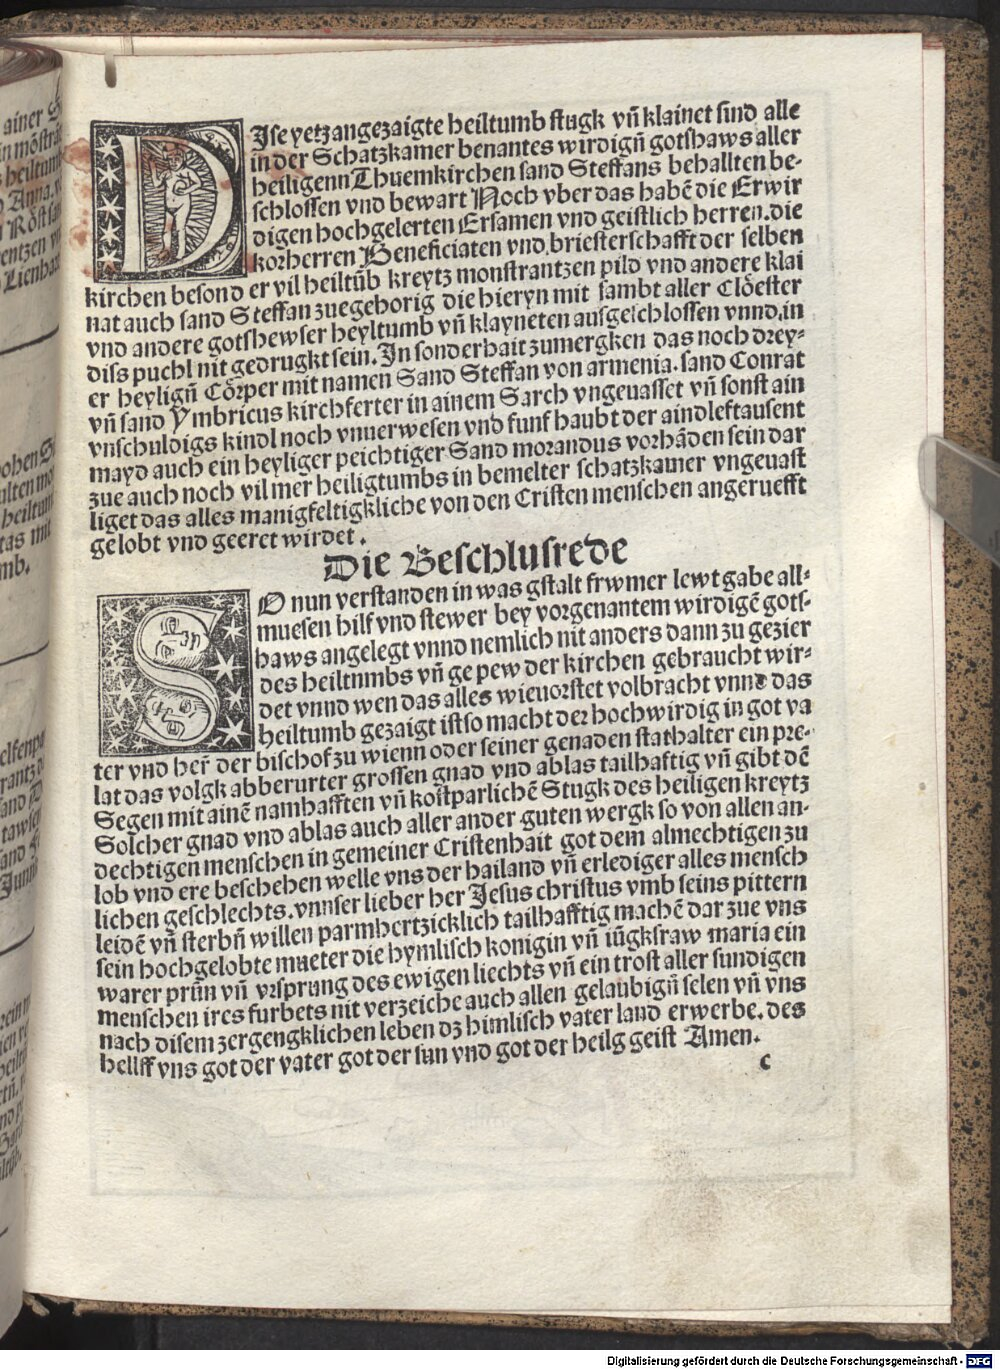 DJse yetzangezaigte heiltumb stugk vñ klainet sind alle
in der Schatzkamer benantes wirdigñ gotshaws aller
heiligenn Thuemkirchen sand Steffans behallten be-
schlossen vnd bewart Noch vber das habẽ die Erwir
digen hochgelerten Ersamen vnd geistlich herren. die
korherren Beneficiaten vnd briesterschafft der selben
kirchen besonder vil heiltũb kreytz monstrantzen pild vnd andere klai
nat auch sand Steffan zuegehorig die hieryn mit sambt aller Clöester
vnd andere gotshewser heyltumb vñ klayneten ausgeschlossen vnnd in
diss puchl nit gedrugkt sein. Jn sonderhait zumergken das noch drey-
er heyligñ Cörper mit namen Sand Steffan von armenia. sand Conrat
vñ sand Ymbricus kirchferter in ainem Sarch vngeuasset vñ sonst ain
vnschuldigs kindl noch vnuerwesen vnd funf haubt der aindleftausent
mayd auch ein heyliger peichtiger Sand morandus vorhãden sein dar
zue auch noch vil mer heiligtumbs in bemelter schatzkamer vngeuast
liget das alles manigfeltigkliche von den Cristen menschen angeruefft
gelobt vnd geeret wirdet.
Die Beschlusrede
SO nun verstanden in was gstalt frwmer lewt gabe all-
muesen hilf vnd stewer bey vorgenantem wirdigẽ gots-
haws angelegt vnnd nemlich nit anders dann zu gezier
des heiltumbs vñ gepew der kirchen gebraucht wir-
det vnnd wen das alles wieuorstet volbracht vnnd das
heiltumb gezaigt ist so macht der hochwirdig in got va
ter vnd her̃ der bischof zu wienn oder seiner genaden stathalter ein pre-
lat das volgk abberurter grossen gnad vnd ablas tailhaftig vñ gibt dẽ
Segen mit ainẽ namhafften vñ kostparlichẽ Stugk des heiligen kreytz
Solcher gnad vnd ablas auch aller ander guten wergk so von allen an-
dechtigen menschen in gemeiner Cristenhait got dem almechtigen zu
lob vnd ere beschehen welle vns der hailand vñ erlediger alles mensch
lichen geschlechts. vnnser lieber her Jesus christus vmb seins pittern
leidẽ vñ sterbñ willen parmhertzicklich tailhafftig machẽ dar zue vns
sein hochgelobte mueter die hymlisch konigin vñ iũgksraw maria ein
warer prũn vñ vrsprung des ewigen liechts vñ ein trost aller sundigen
menschen ires furbets nit verzeiche auch allen gelaubigñ selen vñ vns
nach disem zergengklichen leben dz himlisch vater land erwerbe. des
hellff vns got der vater got der sun vnd got der heilg geist Amen.
c
Digitalisierung gefördert durch die Deutsche Forschungsgemeinschaft - DFG